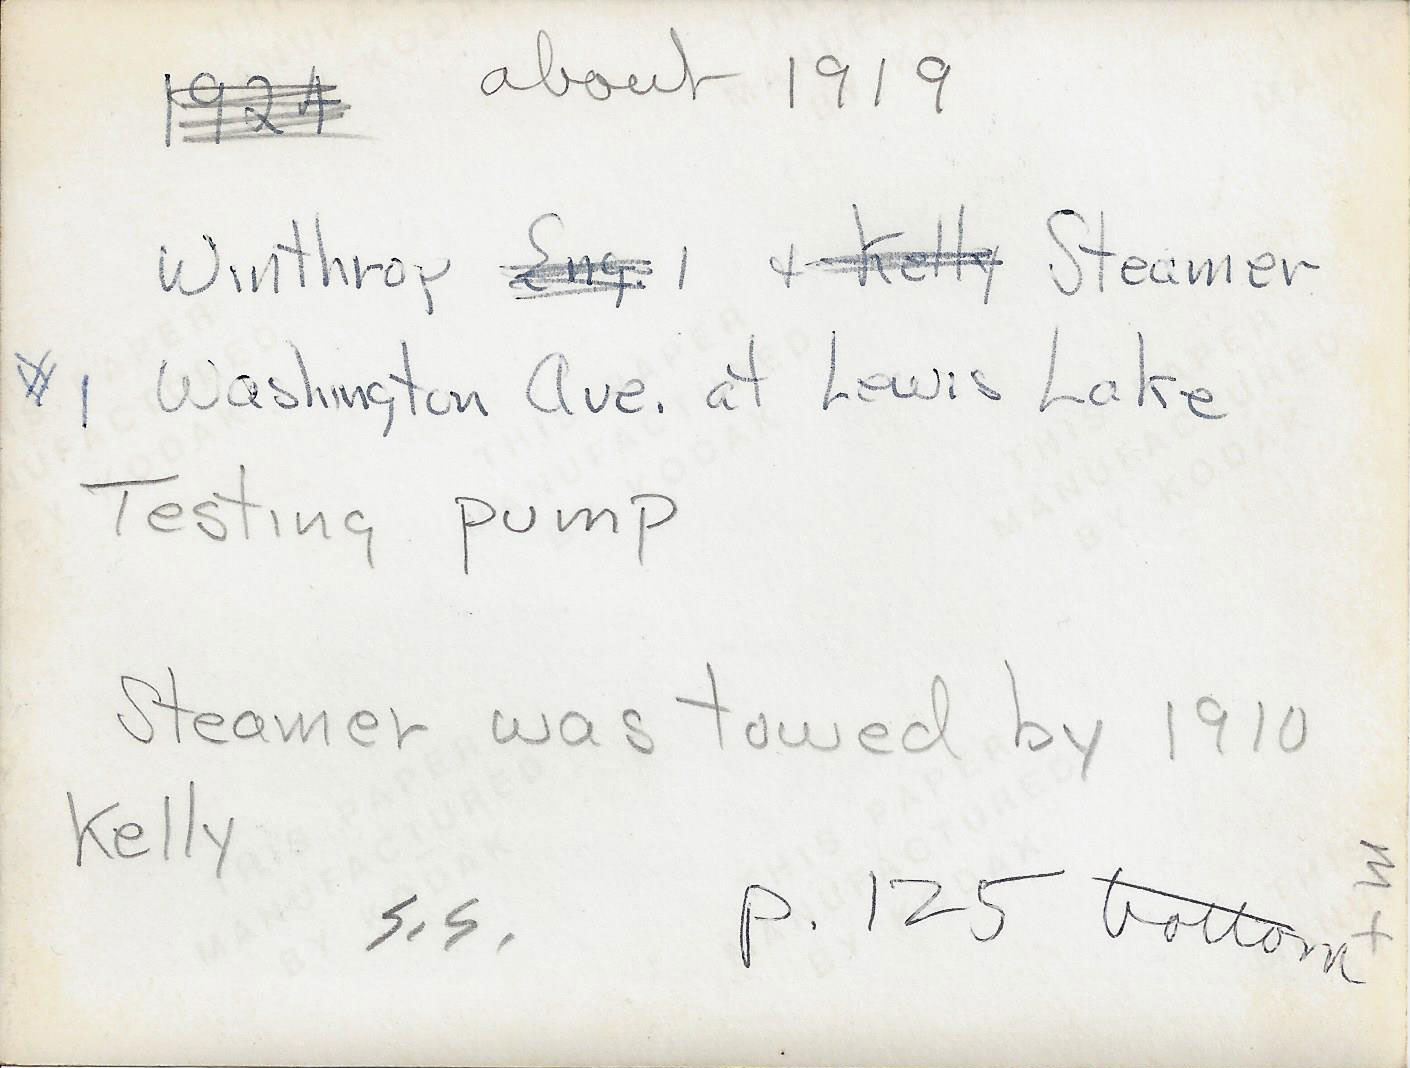 1924 about 1919
Winthrop Eng. 1 + Kelly Steamer
# 1 Washington Ave. at Lewis Lake
Testing pump
Steamer was towed by 1910
Kelly
S.S. p. 125 bottom
THIS PAPER
MANUFACTURED
BY KODAK